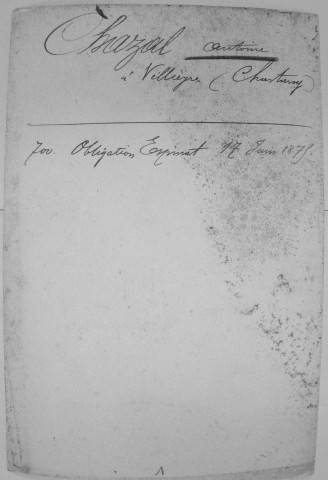 Chazal Antoine
à Villègre (Chastang)
700. Obligation Espinat 14 Juin 1875.